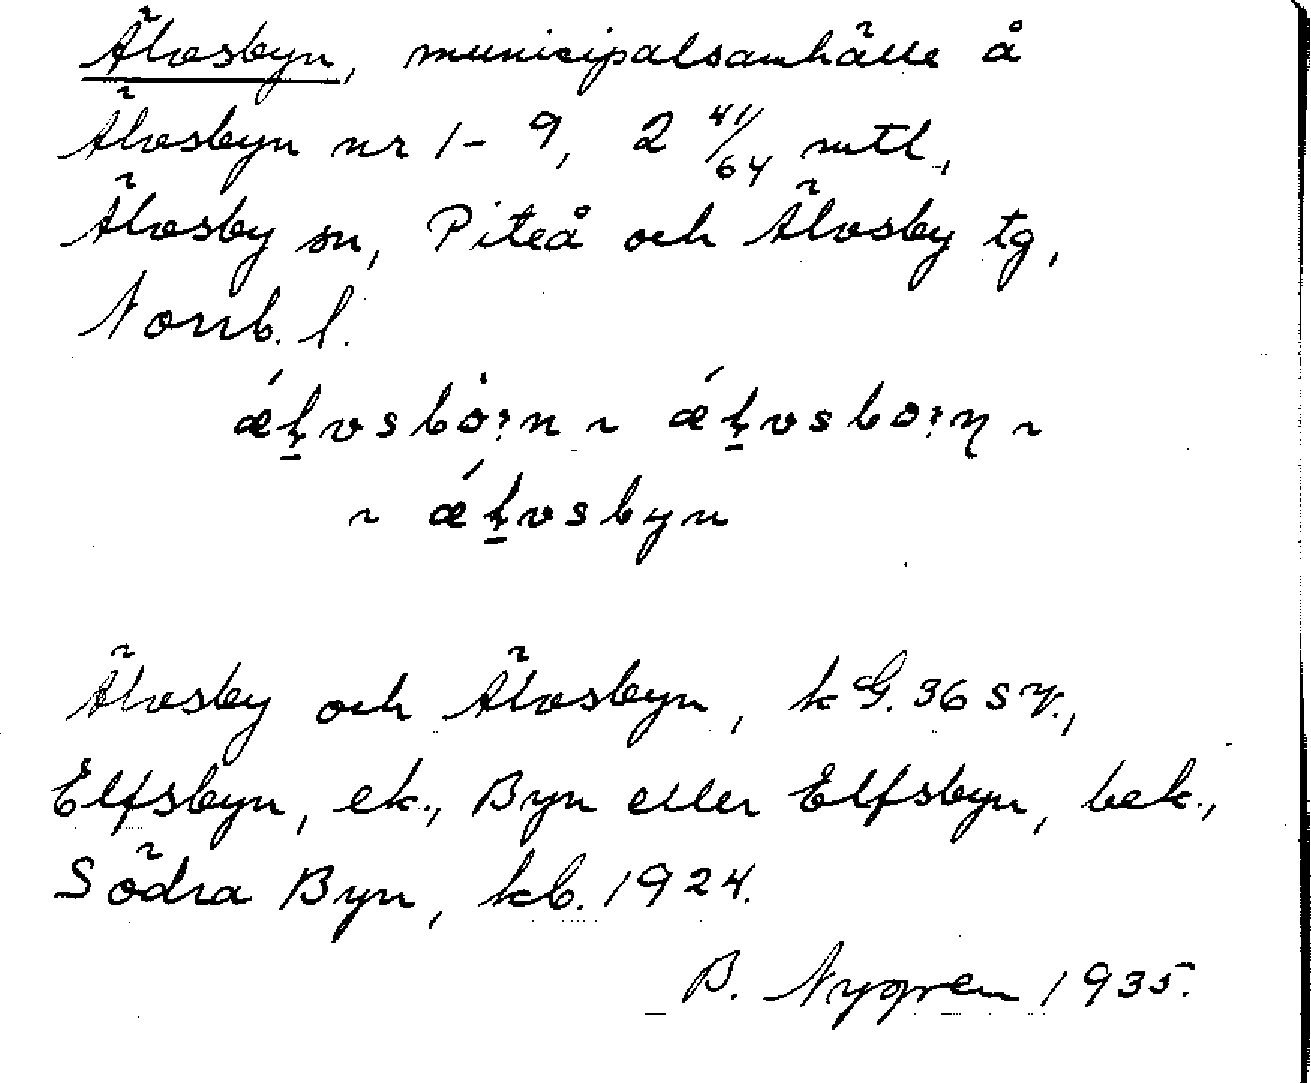 Älvsbyn, municipalsamhälle å
Älvsbyn nr 1-9, 2 41/64 mtl.,
Älvsby sn, Piteå och Älvsby tg,
Norrb. l.
~
~
Älvsby och Älvsbyn, kG. 36 SV.,
Elfsbyn, ek., Byn eller Elfsbyn, bek.,
Södra Byn, kb. 1924.
B. Nygren 1935.